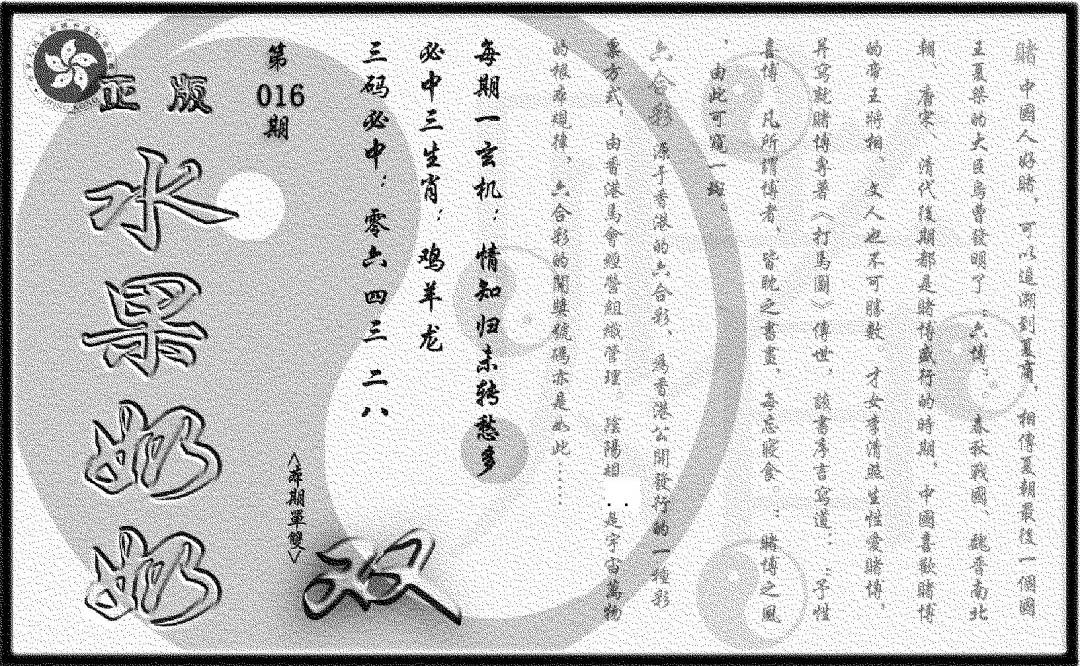 賭 中國人好賭，可以追溯到夏商，相傳夏朝最後一個國
王夏桀的大臣烏曹發明了：六博：。春秋戰國、魏晉南北
朝、唐宋、清代後期都是賭博盛行的時期，中國喜歡賭博
的帝王將相 文人也不可勝數 才女李清照生性愛賭博，
并寫就賭博專著《打馬圖》傳世，該書序言寫道：：予性
喜博 凡所謂博者、皆耽之書晝，每忘寢食。：賭博之風
，由此可窺一斑。
六合彩 源于香港的六合彩、為香港公開發行的一種彩
票方式，由香港馬會經營組織管理。陰陽相..是宇宙萬物
的根本規律，六合彩的開獎號碼亦是如此……
每期一玄机：情知归未转愁多
必中三生肖：鸡羊龙
三码必中：零六 四三 二八
第016期
<本期單雙>
双
正版
水果奶奶